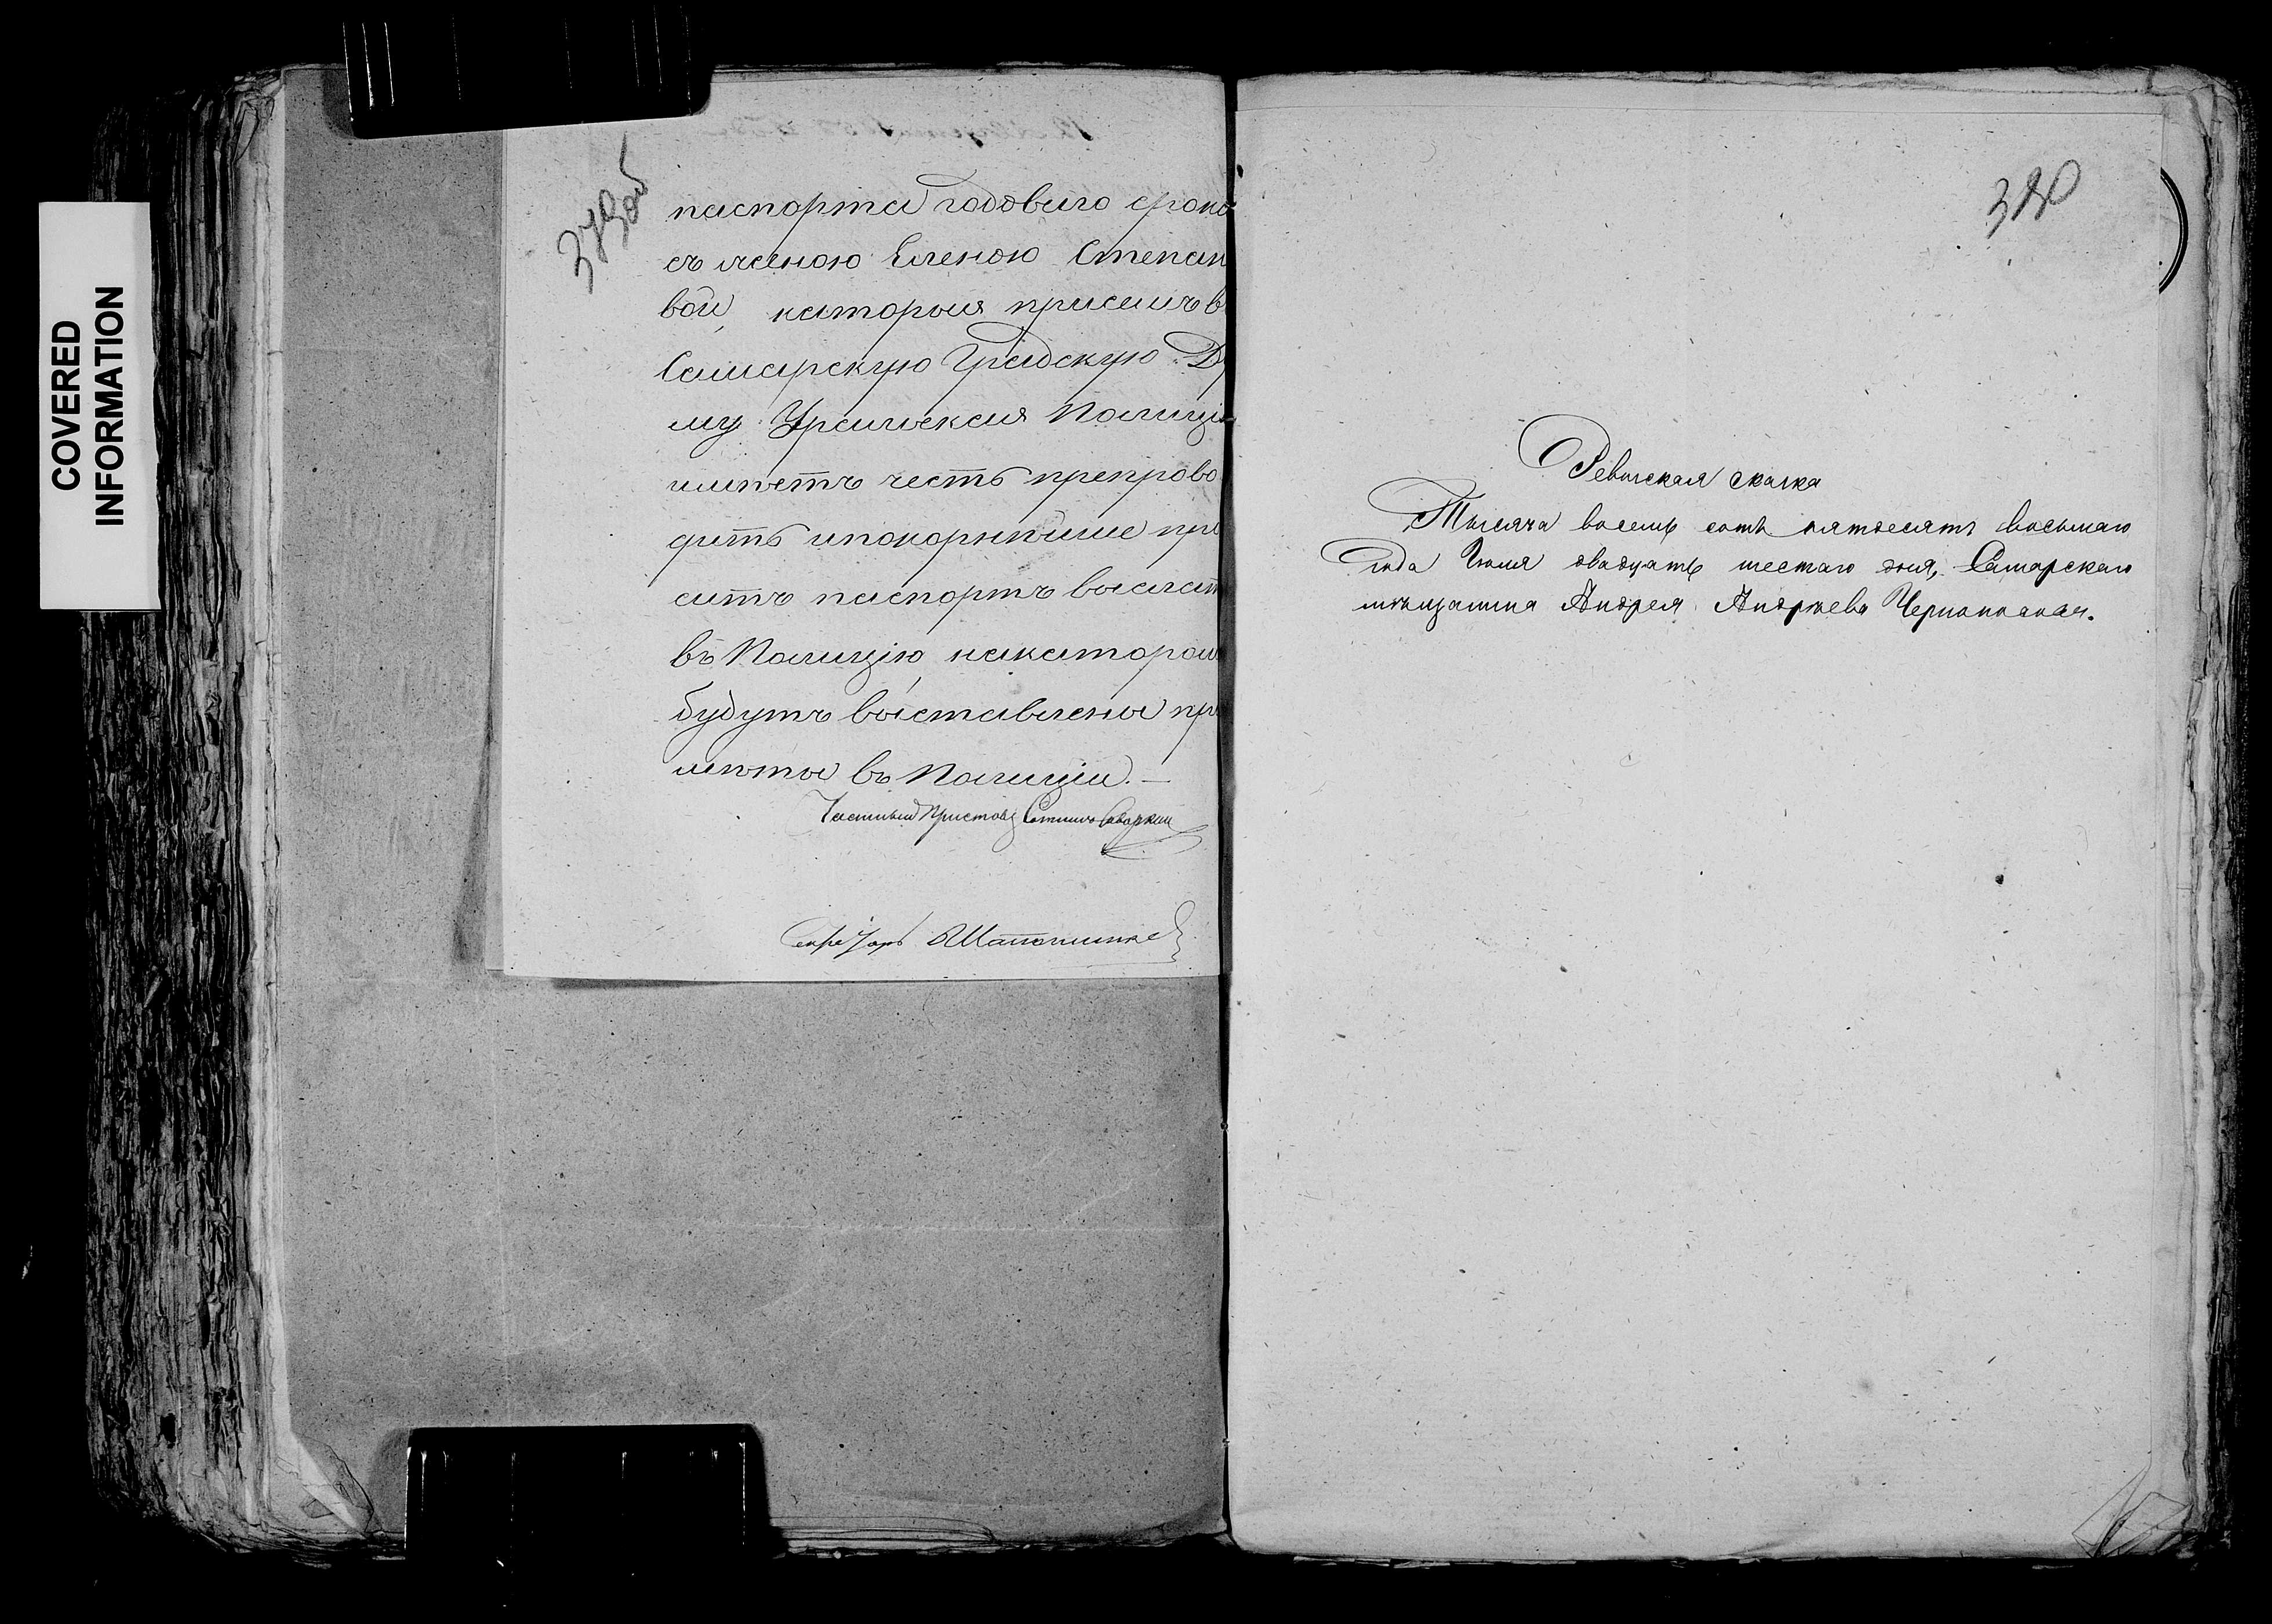 COVERED
INFORMATION
379об
паспорта годоваго срока
съ женою Еленою Степан
вой, каторыя присемъ в
Самарскую Градскую Ду
му Уральская Полиція
имѣетъ честь препрово
дить ипокорнѣйше про
ситъ паспортъ выслат
въ Полицію, накаторый
будутъ выставлены при
мѣты въ Полиціи. —
Частный Приставъ Сотникъ
Секретарь Шапошников
380
Ревизская сказка
Тысяча восемь сотъ пятдесятъ восьмаго
года Іюля двадцать шестаго дня, Самарскаго
мѣщанина Андрея Андрѣева